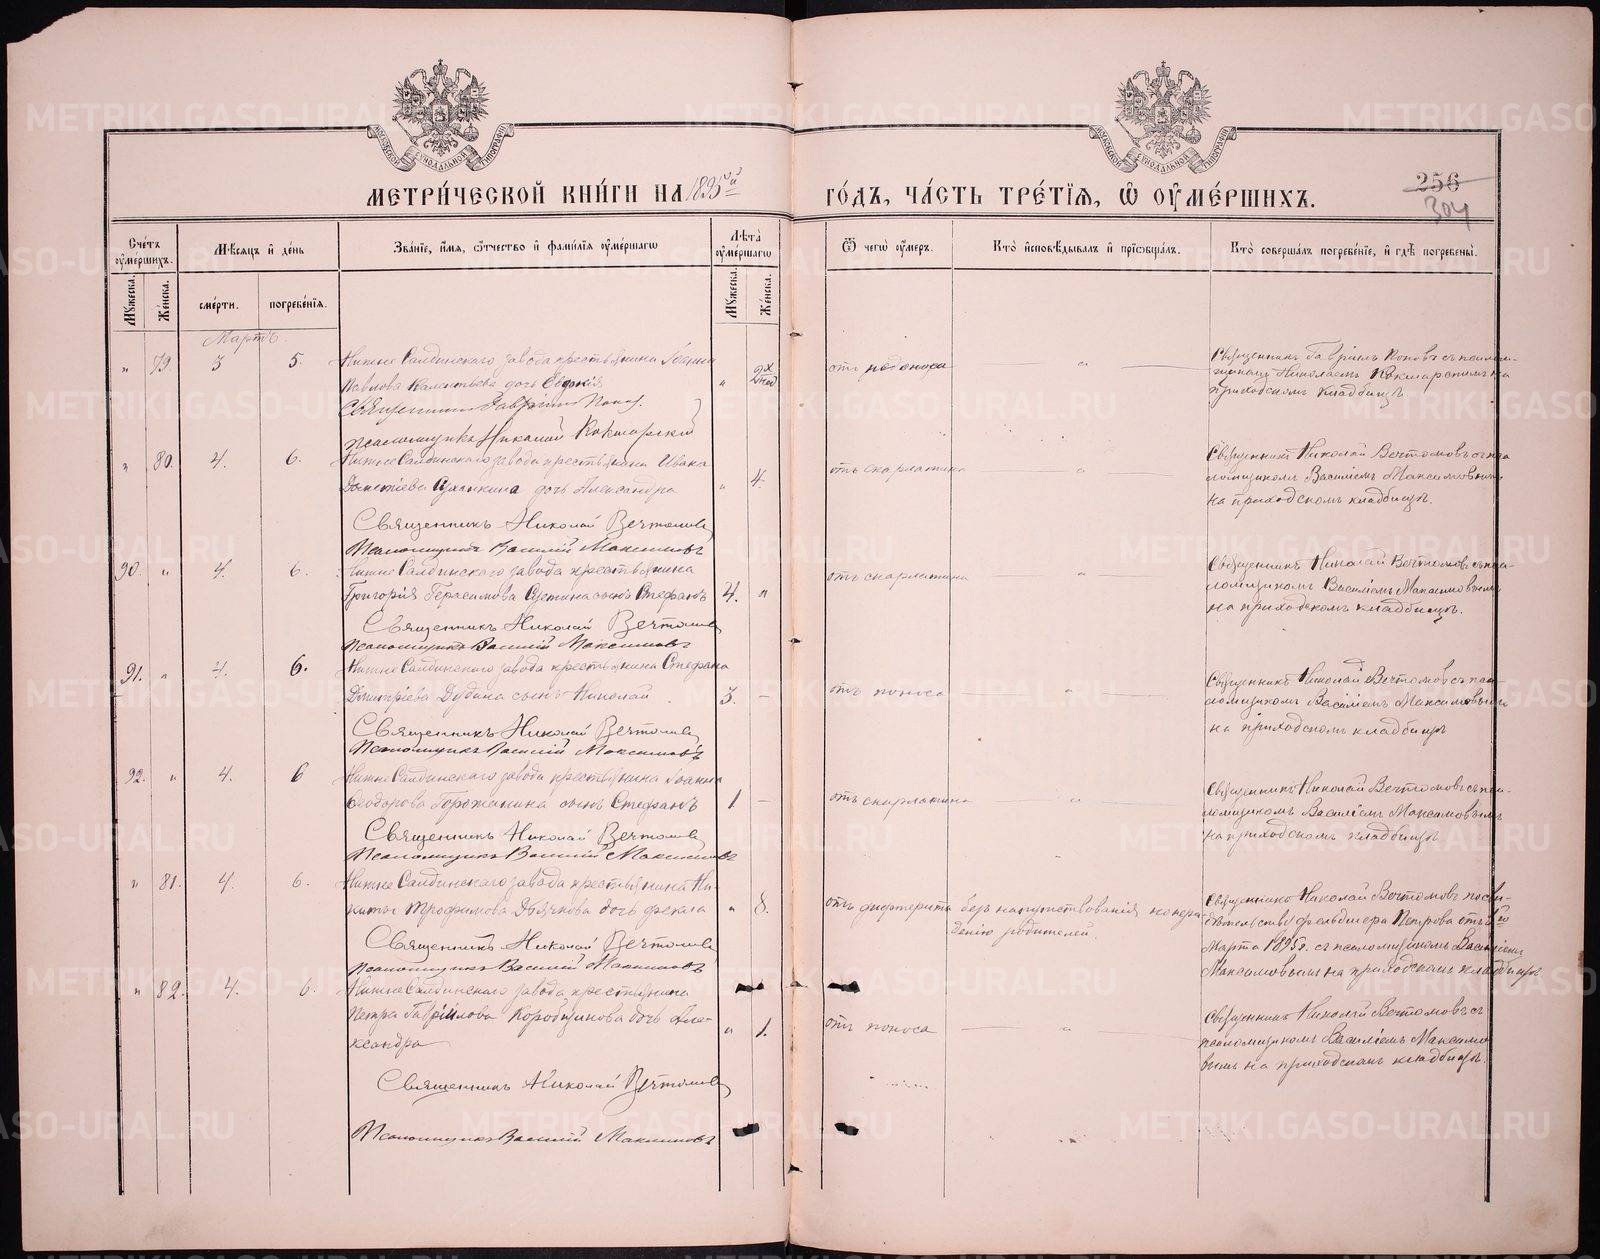 МЕТРИ́ЧЕСКОЙ КНИ́ГИ НА 1895ый ГО́ДЪ, ЧА́СТЬ ТРЕ́ТІЯ, Ѿ ОУМЕ́РШИХЪ.
256
304
Счетъ оумершихъ.
Мужеска.
Женска.
Мѣсяцъ и день
смерти.
погребенія.
Званіе, имя, отчество и фамилія оумершагѡ
Лѣта оумершагѡ
Мужеска.
Женска.
Ѿ чегѡ оумеръ.
Кто исповѣдывалъ и пріѡбщалъ.
Кто совершалъ погребеніе, и гдѣ погребены.
Мартъ.
" 79. 3 5. Нижне Салдинскаго завода крестьянина Іоанна
Павлова дочь Евдокія
" 2х
отъ поноса
"
Священникъ Гавріилъ Поповъ съ псалом-
щикомъ Николаемъ Кокшарскимъ на
приходскомъ кладбищѣ
Священникъ Гавріилъ Поповъ.
Псаломщикъ Николай Кокшарскій
" 80. 4. 6. Нижне Салдинскаго завода крестьянина Ивана
дочь Александра
" 4.
отъ скарлатина
"
Священникъ Николай Вечтомовъ съ пса-
ломщикомъ Василіемъ Максимовымъ
на приходскомъ кладбищѣ.
Священникъ Николай Вечтомовъ
Псаломщикъ Василій Максимовъ
90. " 4. 6. Нижне Салдинскаго завода крестьянина
Григорія Герасимова сынъ Стефанъ
4. "
отъ скарлатина
"
Священникъ Николай Вечтомовъ съ пса-
ломщикомъ Василіемъ Максимовымъ
на приходскомъ кладбищѣ.
Священникъ Николай Вечтомовъ
Псаломщикъ Василій Максимовъ
91. " 4. 6. Нижне Салдинскаго завода крестьянина Стефана
Димитріева Дудина сынъ Николай
3. –
отъ поноса
"
Священникъ Николай Вечтомовъ съ пса-
ломщикомъ Василіемъ Максимовымъ
на приходскомъ кладбищѣ
Священникъ Николай Вечтомовъ
Псаломщикъ Василій Максимовъ
92. " 4. 6 Нижне Салдинскаго завода крестьянина Іоанна
Ѳеодорова Горожанина сынъ Стефанъ
1 –
отъ скарлатина
"
Священникъ Николай Вечтомовъ съ пса-
ломщикомъ Василіемъ Максимовымъ
на приходскомъ кладбищѣ
Священникъ Николай Вечтомовъ
Псаломщикъ Василій Максимовъ
" 81. 4. 6. Нижне Салдинскаго завода крестьянина Ни-
киты Трофимова Дьячкова дочь Ѳекла
" 8.
отъ дифтерита
безъ напутствованія по нера-
дѣнію родителей.
Священникъ Николай Вечтомовъ по сви-
дѣтельству фельдшера Петрова отъ
Марта 1895г. съ псаломщикомъ Василіемъ
Максимовымъ на приходскомъ кладбищѣ
Священникъ Николай Вечтомовъ
Псаломщикъ Василій Максимовъ
" 82. 4. 6. Нижне Салдинскаго завода крестьянина
Петра Гавріилова Коробщикова дочь Але-
ксандра
" 1.
отъ поноса
"
Священникъ Николай Вечтомовъ съ
псаломщикомъ Василіемъ Максимо-
вымъ на приходскомъ кладбищѣ.
Священникъ Николай Вечтомовъ
Псаломщикъ Василій Максимовъ
METRIKI.GASO-URAL.RU